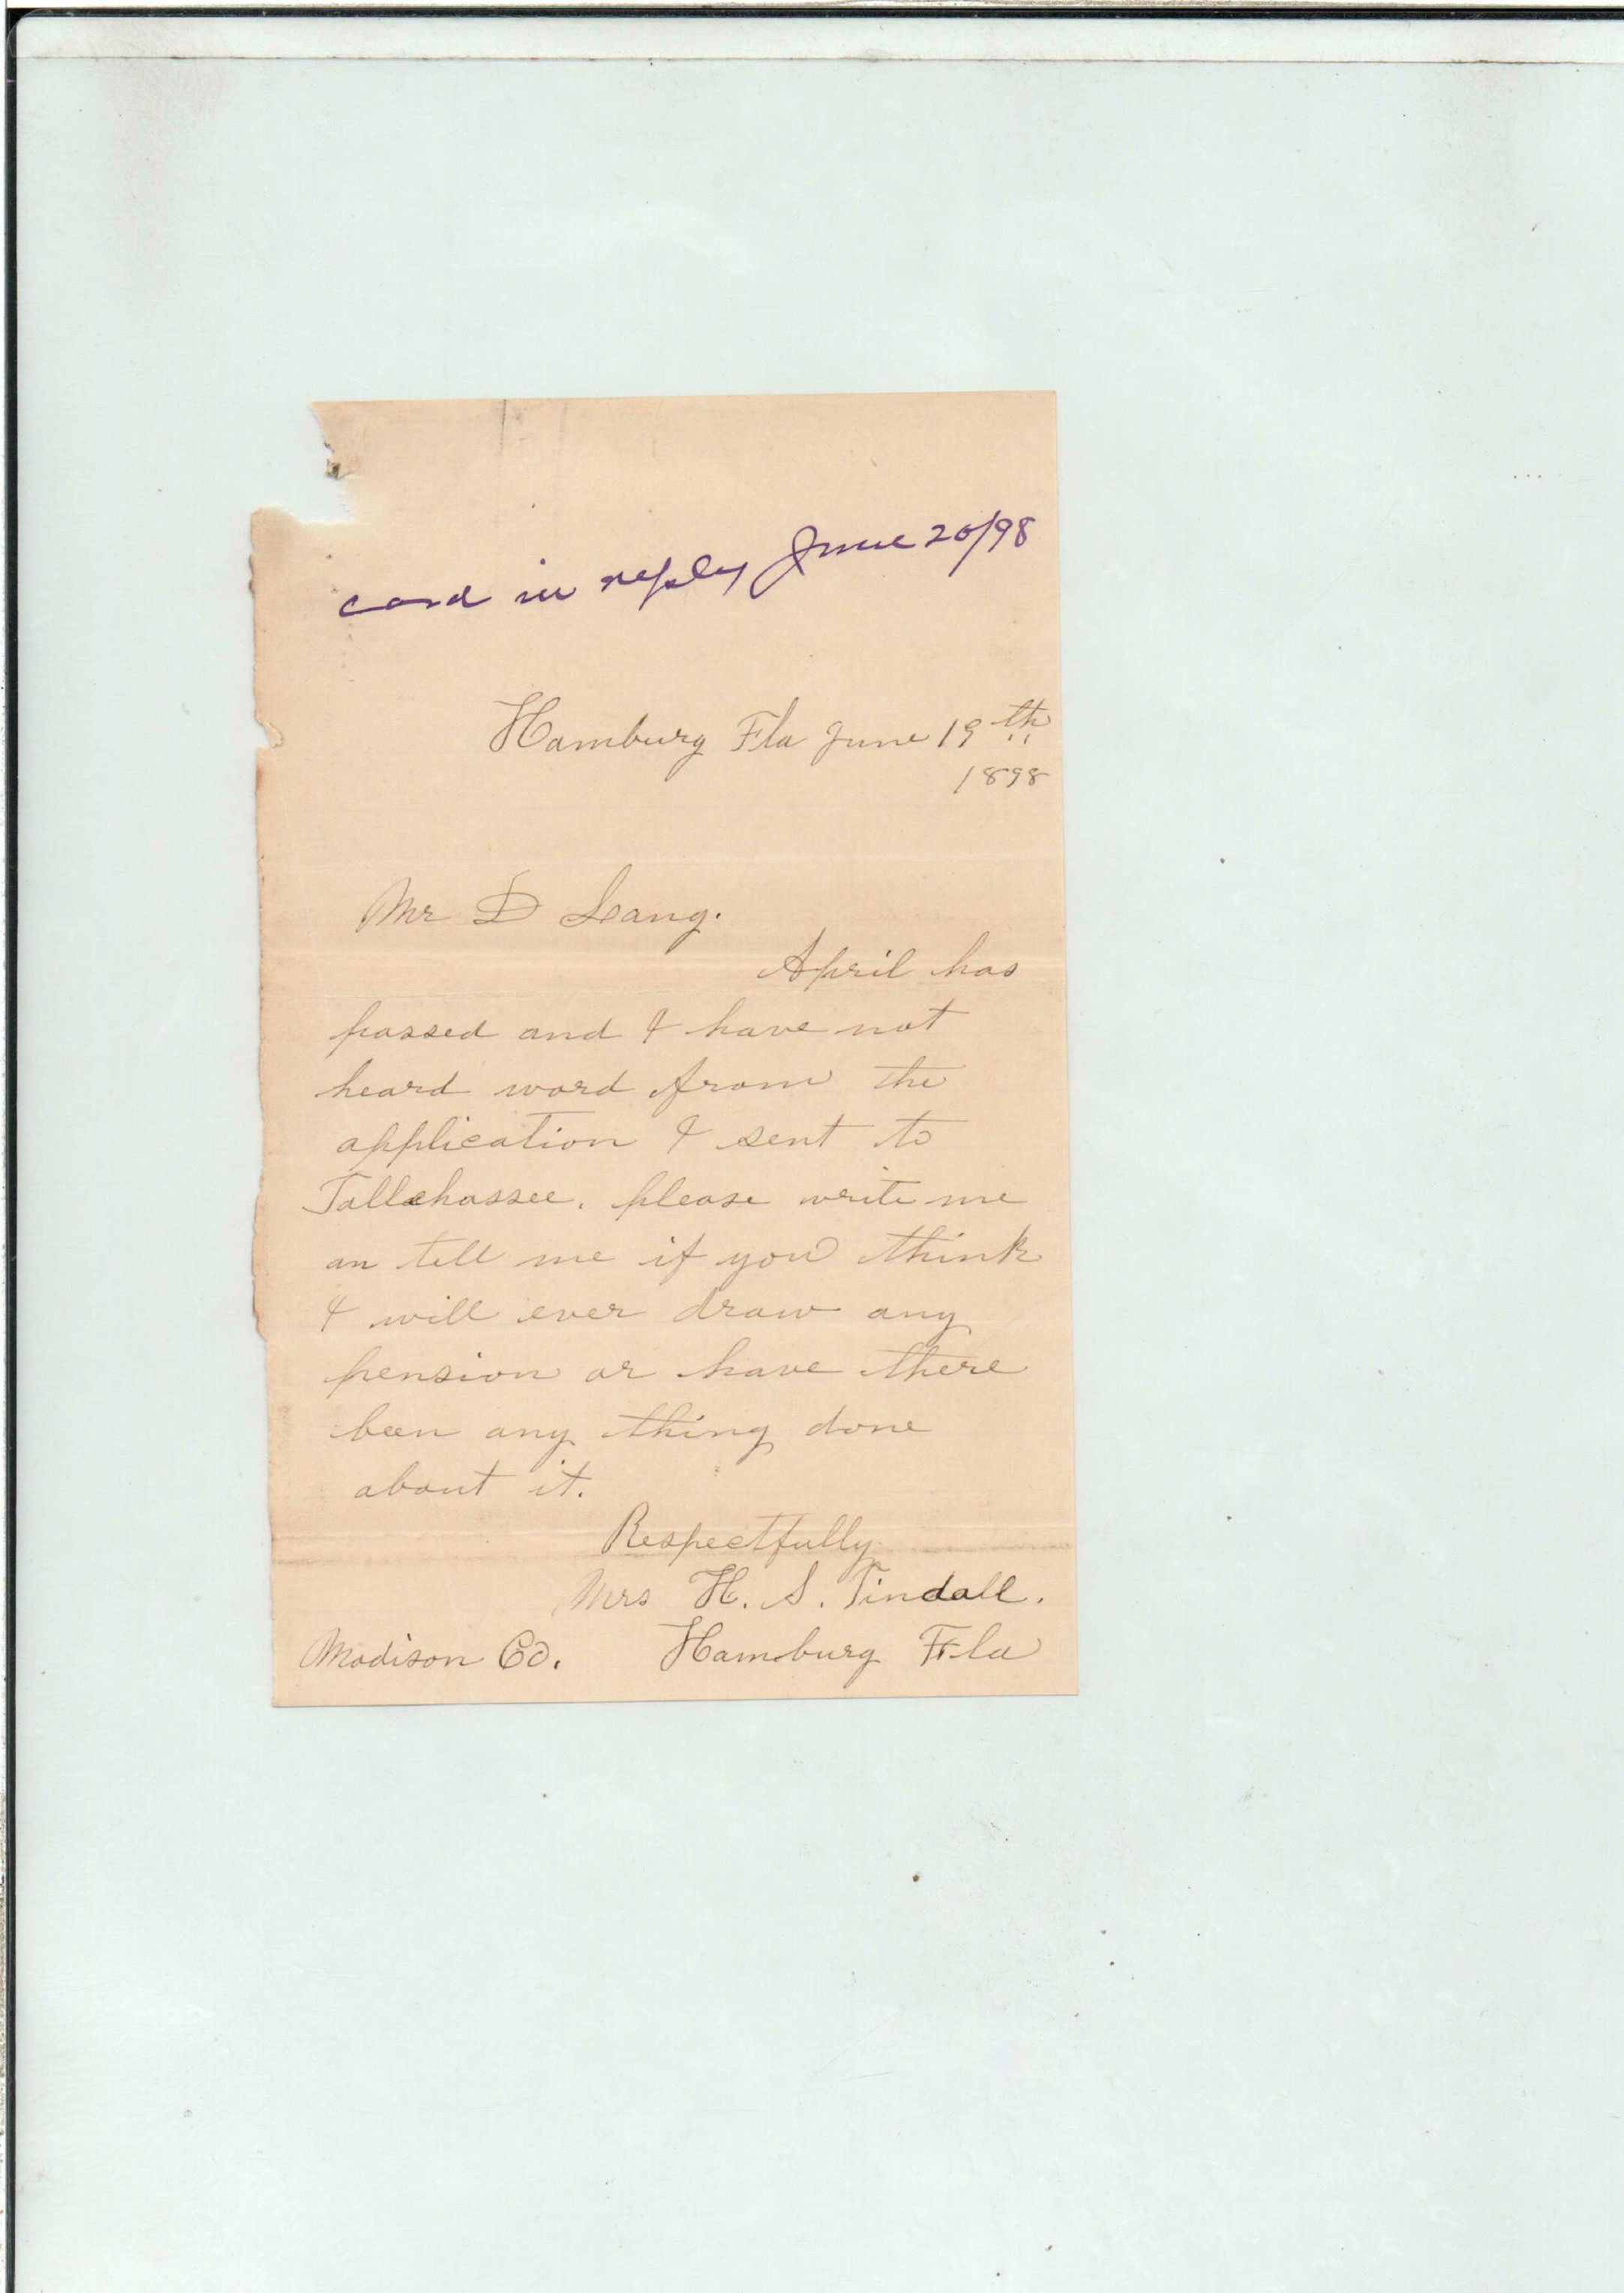 card in reply June 20/98
Hamburg Fla June 19th
1898
Mr D Lang.
April has
passed and I have not
heard word from the
application I sent to
Tallahassee. please write me
an tell me if you think
I will ever draw any
pension or have there
been any thing done
about it.
Respectfully
Mrs H. S. Tindall.
Madison Co. Hamburg Fla